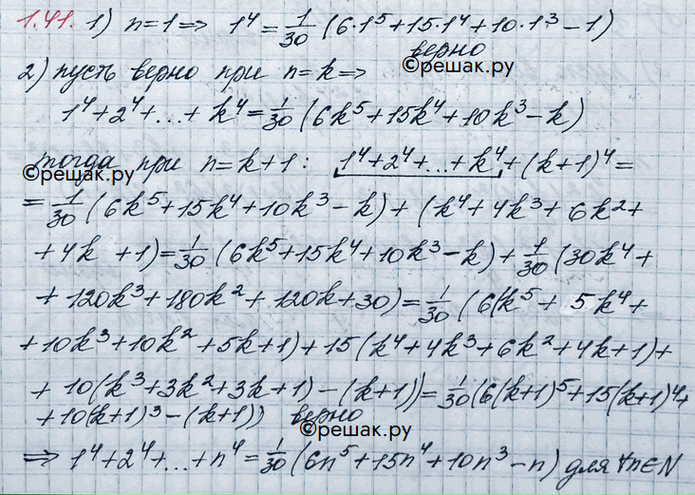 1.41. 1) n=1 => 1⁴ = 1/30 (6·1⁵+15·1⁴+10·1³-1)
верно
©решак.ру
2) пусть верно при n=k =>
1⁴+2⁴+...+k⁴ = 1/30 (6k⁵+15k⁴+10k³-k)
тогда при n=k+1: 1⁴+2⁴+...+k⁴+(k+1)⁴=
©решак.ру
= 1/30 (6k⁵+15k⁴+10k³-k) + (k⁴+4k³+6k²+
+4k +1) = 1/30 (6k⁵+15k⁴+10k³-k) + 1/30 (30k⁴+
+120k³+180k²+120k+30) = 1/30 (6(k⁵+ 5k⁴+
+10k³+10k²+5k+1)+15(k⁴+4k³+6k²+4k+1)+
+10(k³+3k²+3k+1)-(k+1)) = 1/30 (6(k+1)⁵+15(k+1)⁴+
+10(k+1)³-(k+1)) верно
©решак.ру
=> 1⁴+2⁴+...+n⁴ = 1/30 (6n⁵+15n⁴+10n³-n) для ∀n∈N